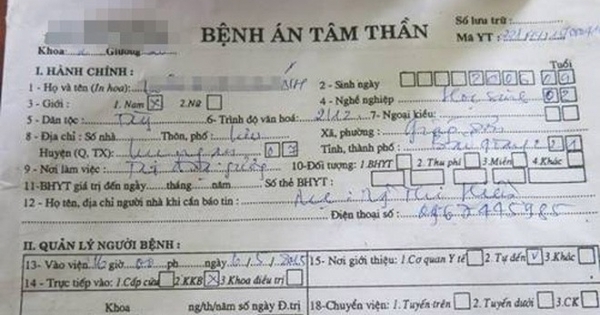 BỆNH ÁN TÂM THẦN
Số lưu trữ :
Mã YT :
Khoa: Giường
I. HÀNH CHÍNH :
Tuổi
1 - Họ và tên (In hoa): 2 - Sinh ngày 2006 09
3 - Giới : 1. Nam X 2. Nữ 4 - Nghề nghiệp : Học sinh 02
5 - Dân tộc : Tày 6- Trình độ văn hoá: 2/12 7- Ngoại kiều:
8 - Địa chỉ : Số nhà Thôn, phố : Xã, phường :
Huyện (Q, TX): 07 Tỉnh, thành phố : 21
9 - Nơi làm việc : 10-Đối tượng: 1.BHYT 2. Thu phí 3.Miễn 4.Khác
11-BHYT giá trị đến ngày tháng năm Số thẻ BHYT :
12 - Họ tên, địa chỉ người nhà khi cần báo tin : Mẹ: Thị
Điện thoại số : 0967495985
II. QUẢN LÝ NGƯỜI BỆNH :
13- Vào viện 16 giờ 00 ph. ngày 6/5/2015 15- Nơi giới thiệu: 1.Cơ quan Y tế 2.Tự đến V 3.Khác
14 - Trực tiếp vào: 1.Cấp cứu 2.KKB X 3 Khoa điều trị
Khoa ng/th/năm số ngày Đ.trị 18-Chuyển viện: 1.Tuyến trên 2.Tuyến dưới 3.CK